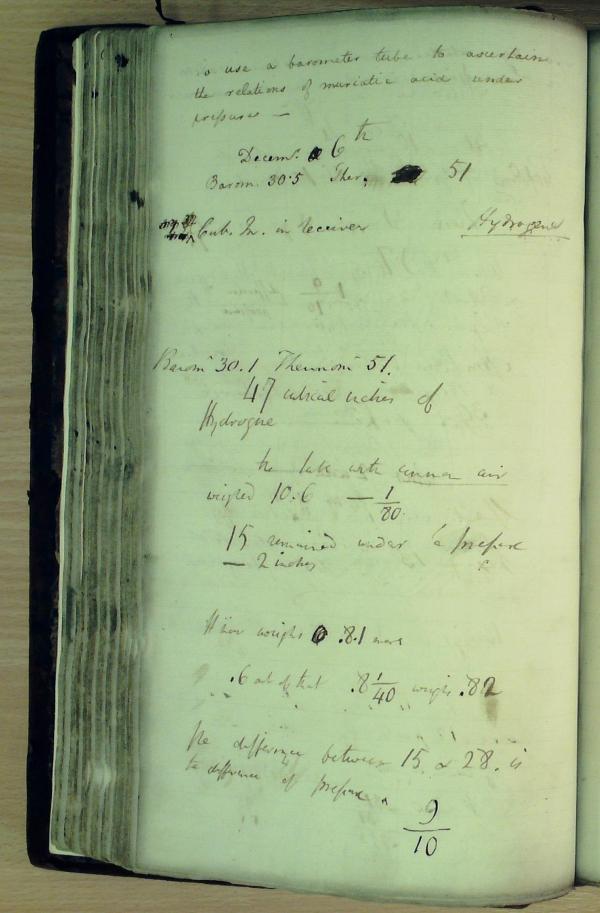 to use a barometer tube to ascertain
the relations of muriatic acid under
pressure —
Decemr. 6th
Barom. 30.5 Ther. 51
Cub. In. in receiver Hydrogene
Barom 30.1 Thermom 51.
47 cubical inches of
Hydrogene
the with common air
weighed 10.6 — 1/80.
15 remained under a pressure
— 2 inches
weighs .8.1 more
.6 out of that .8 1/40 weighs .82
The difference between 15 & 28. is
the difference of pressure
9/10